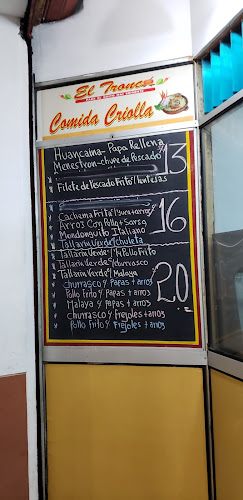 El Tronco
Comida Criolla
Huancaina - Papa Rellena
Menestron - chupe de Pescado
13
Filete de Pescado Frito / Lentejas
Cachema Frita / sarza + arroz
Arroz con Pollo + Sarsa
16
Mondonguito Italiano
Tallarin Verde / chuleta
Tallarin Verde / Pollo Frito
Tallarin Verde / churrasco
Tallarin Verde / Malaya
20
churrasco y Papas + arros
Pollo Frito y Papas + arros
Malaya y papas + arros
churrasco y Frejoles + arros
Pollo Frito y Frejoles + arros